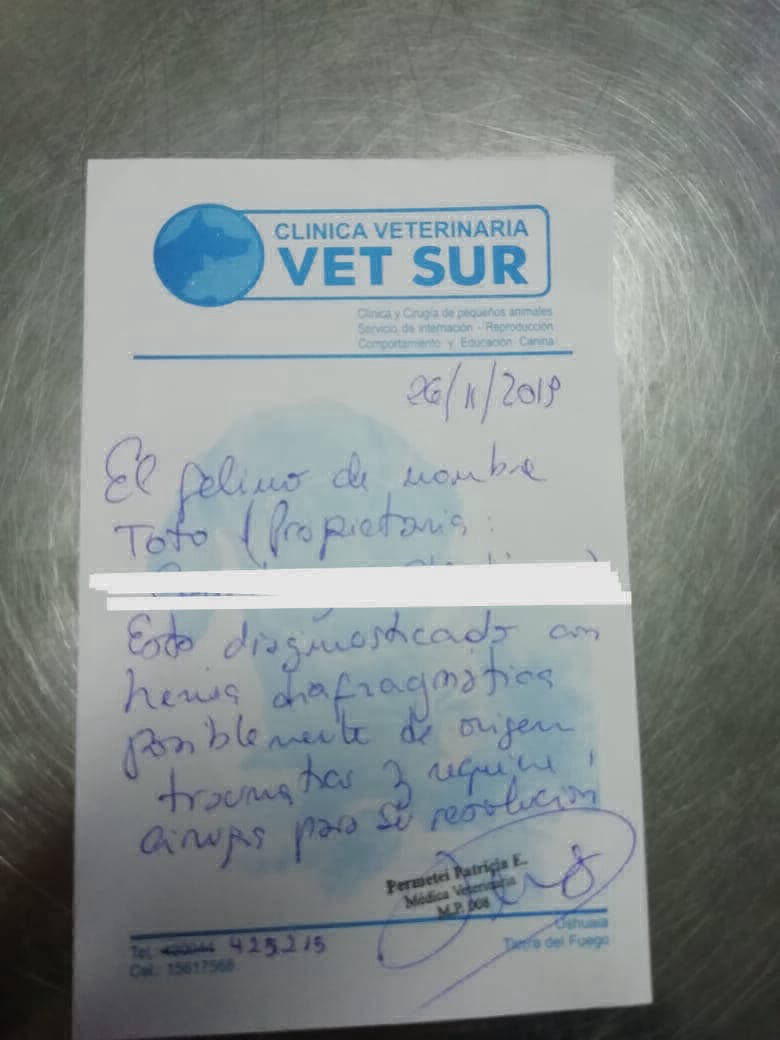 CLINICA VETERINARIA
VET SUR
Clínica y Cirugía de pequeños animales
Servicio de internación - Reproducción
Comportamiento y Educación Canina
26/11/2019
El felino de nombre
Toto (Propietaria:
Esta diagnosticado con
hernia diafragmática
posiblemente de origen
traumatico y requiere
cirugia para su resolución
Permetei Patricia E.
Médica Veterinaria
M.P. 008
Tel. 425215
Cel.: 15617568
Ushuaia
Tierra del Fuego